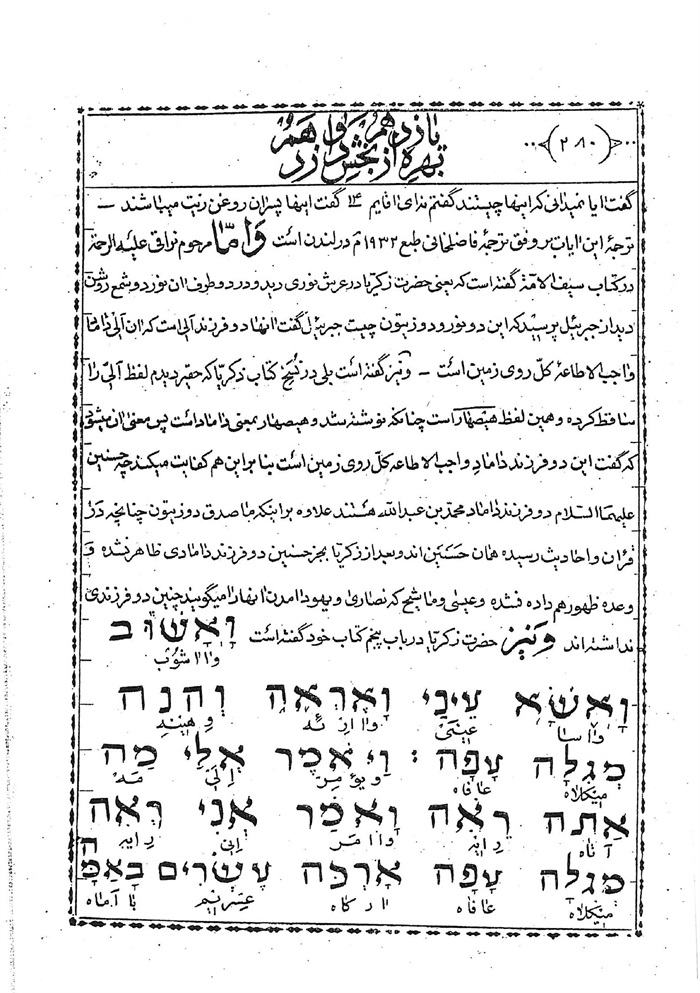 یازدهم و هم
(۲۸۰)
بهره از بخش دوازد
گفت ایا نمیدانی که اینها چیستند گفتم نه ای اقایم ۱۴ گفت اینها پسران روغن زیت میباشند —
ترجمهٔ این ایات بر وفق ترجمهٔ فاضلخانی طبع ۱۹۳۲ م در لندن است وامّا مرحوم نراقی علیه الرحمة
در کتاب سیف الامة گفته است که یعنی حضرت زکریا در عرش نوری دید و در دو طرف ان نور دو شمع روشن
دید از جبرئیل پرسید که این دو نور و دو زیتون چیست جبرئیل گفت انها دو فرزند آلی است که ان آلی داماد
واجب الاطاعهٔ کلّ روی زمین است — و نیز گفته است بلی در نسخ کتاب ذکریا که حقیر دیدم لفظ آلیّ را
ساقط کرده و همین لفظ هیصهار است چنانکه نوشته شد و هیصهار بمعنی داماد است پس معنی ان میشود
که گفت این دو فرزند داماد واجب الاطاعه کل روی زمین است بنابر این هم کفایت میکند چه حسنین
علیهما السلام دو فرزند داماد محمّد بن عبد الله هستند علاوه بر اینکه ما صدق دو زیتون چنانچه در
قرآن و احادیث رسیده همان حسنین اند و بعد از زکریا بجز حسنین دو فرزند دامادی ظاهر نشده و
وعده ظهور هم داده نشده و عیسی و ماشیح که نصاری و یهود امدن انها را میگویند چنین دو فرزندی
نداشته اند ونیز حضرت زکریا در باب پنجم کتاب خود گفته است וָאָשׁוּב
وااشوب
וָאֶשָּׂא עֵינַי וָאֶרְאֶה וְהִנֵּה
وااسا عینی واارئه وهینه
מְגִלָּה עָפָה : וַיֹּאמֶר אֵלַי מָה
میکلاه عافاه ویؤمر الی مه
אַתָּה רֹאֶה וָאֹמַר אֲנִי רֹאֶה
آتاه رایه واامر انی رایه
מְגִלָּה עָפָה אָרְכָּהּ עֶשְׂרִים בָּאַמָּה
میکلاه عافاه ارکاه عسریم باآماه